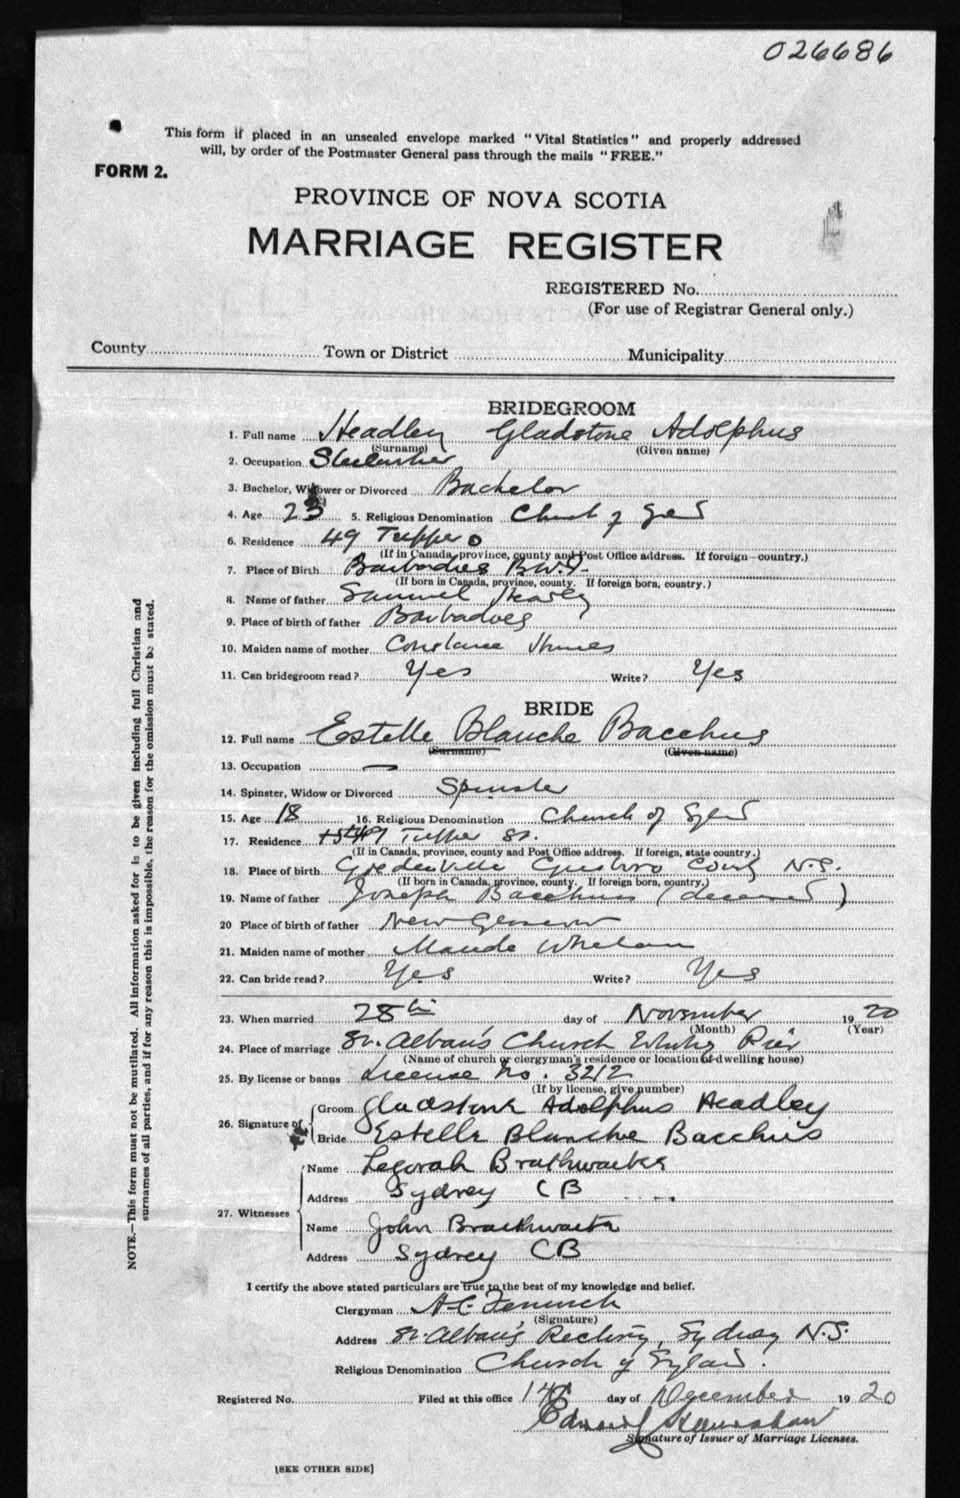 026686
This form if placed in an unsealed envelope marked "Vital Statistics" and properly addressed
will, by order of the Postmaster General pass through the mails "FREE."
FORM 2.
PROVINCE OF NOVA SCOTIA
MARRIAGE REGISTER
REGISTERED No.
(For use of Registrar General only.)
County Town or District Municipality
BRIDEGROOM
1. Full name Headley Gladstone Adolphus
(Surname) (Given name)
2. Occupation
3. Bachelor, Widower or Divorced Bachelor
4. Age 23 5. Religious Denomination Church of
6. Residence 49 Tupper
(If in Canada, province, county and Post Office address. If foreign—country.)
7. Place of Birth Barbadies B.W.I.
(If born in Canada, province, county. If foreign born, country.)
8. Name of father Samuel
9. Place of birth of father Barbadoes
10. Maiden name of mother Constance
11. Can bridegroom read? Yes Write? Yes
BRIDE
12. Full name Estelle Blanche Bacchus
(Surname) (Given name)
13. Occupation —
14. Spinster, Widow or Divorced Spinster
15. Age 18 16. Religious Denomination Church of
17. Residence 49 Tupper St.
(If in Canada, province, county and Post Office address. If foreign, state country.)
18. Place of birth N.S.
(If born in Canada, province, county. If foreign born, country.)
19. Name of father Joseph Bacchus (deceased)
20 Place of birth of father New
21. Maiden name of mother Maude Whelan
22. Can bride read? Yes Write? Yes
23. When married 28th day of November 1920
(Month) (Year)
24. Place of marriage St. Alban's Church Whitney Pier
(Name of church or clergyman's residence or location of dwelling house)
25. By license or banns License No. 3212
(If by license, give number)
26. Signature of Groom Gladstone Adolphus Headley
Bride Estelle Blanche Bacchus
27. Witnesses
Name Brathwaite
Address Sydney C B
Name John Braithwaite
Address Sydney C B
I certify the above stated particulars are true to the best of my knowledge and belief.
Clergyman A. C.
(Signature)
Address St. Alban's Rectory, Sydney N.S.
Religious Denomination Church of
Registered No. Filed at this office 14th day of December 1920
Edward
Signature of Issuer of Marriage Licenses.
[SEE OTHER SIDE]
NOTE.—This form must not be mutilated. All information asked for is to be given including full Christian and
surnames of all parties, and if for any reason this is impossible, the reason for the omission must be stated.